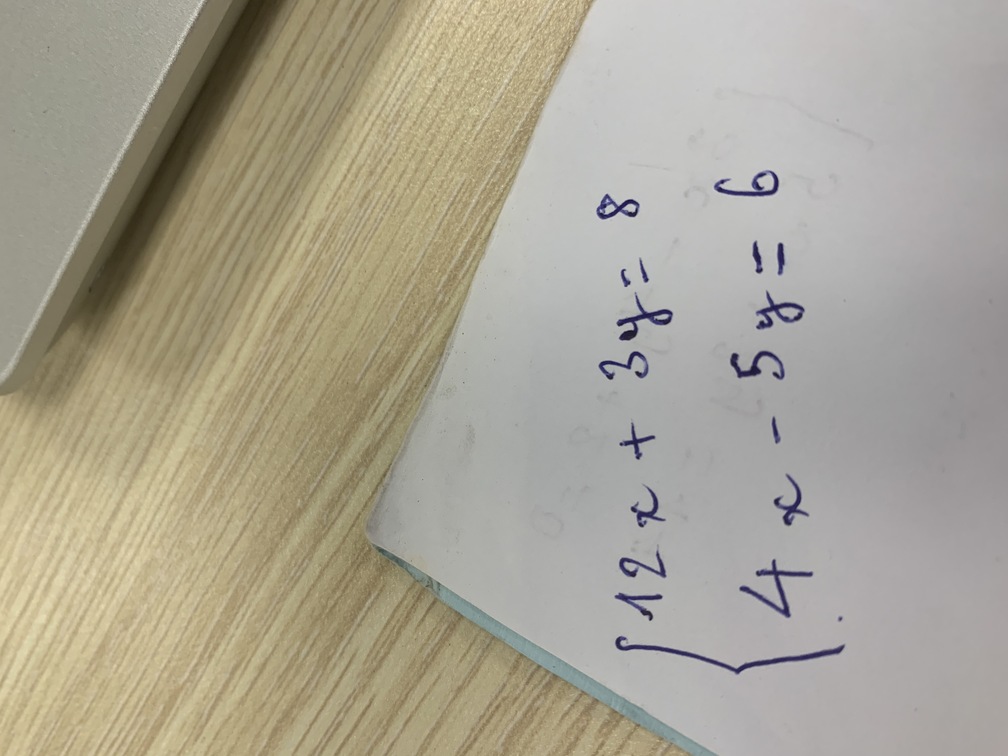 12x + 3y = 8
4x - 5y = 6